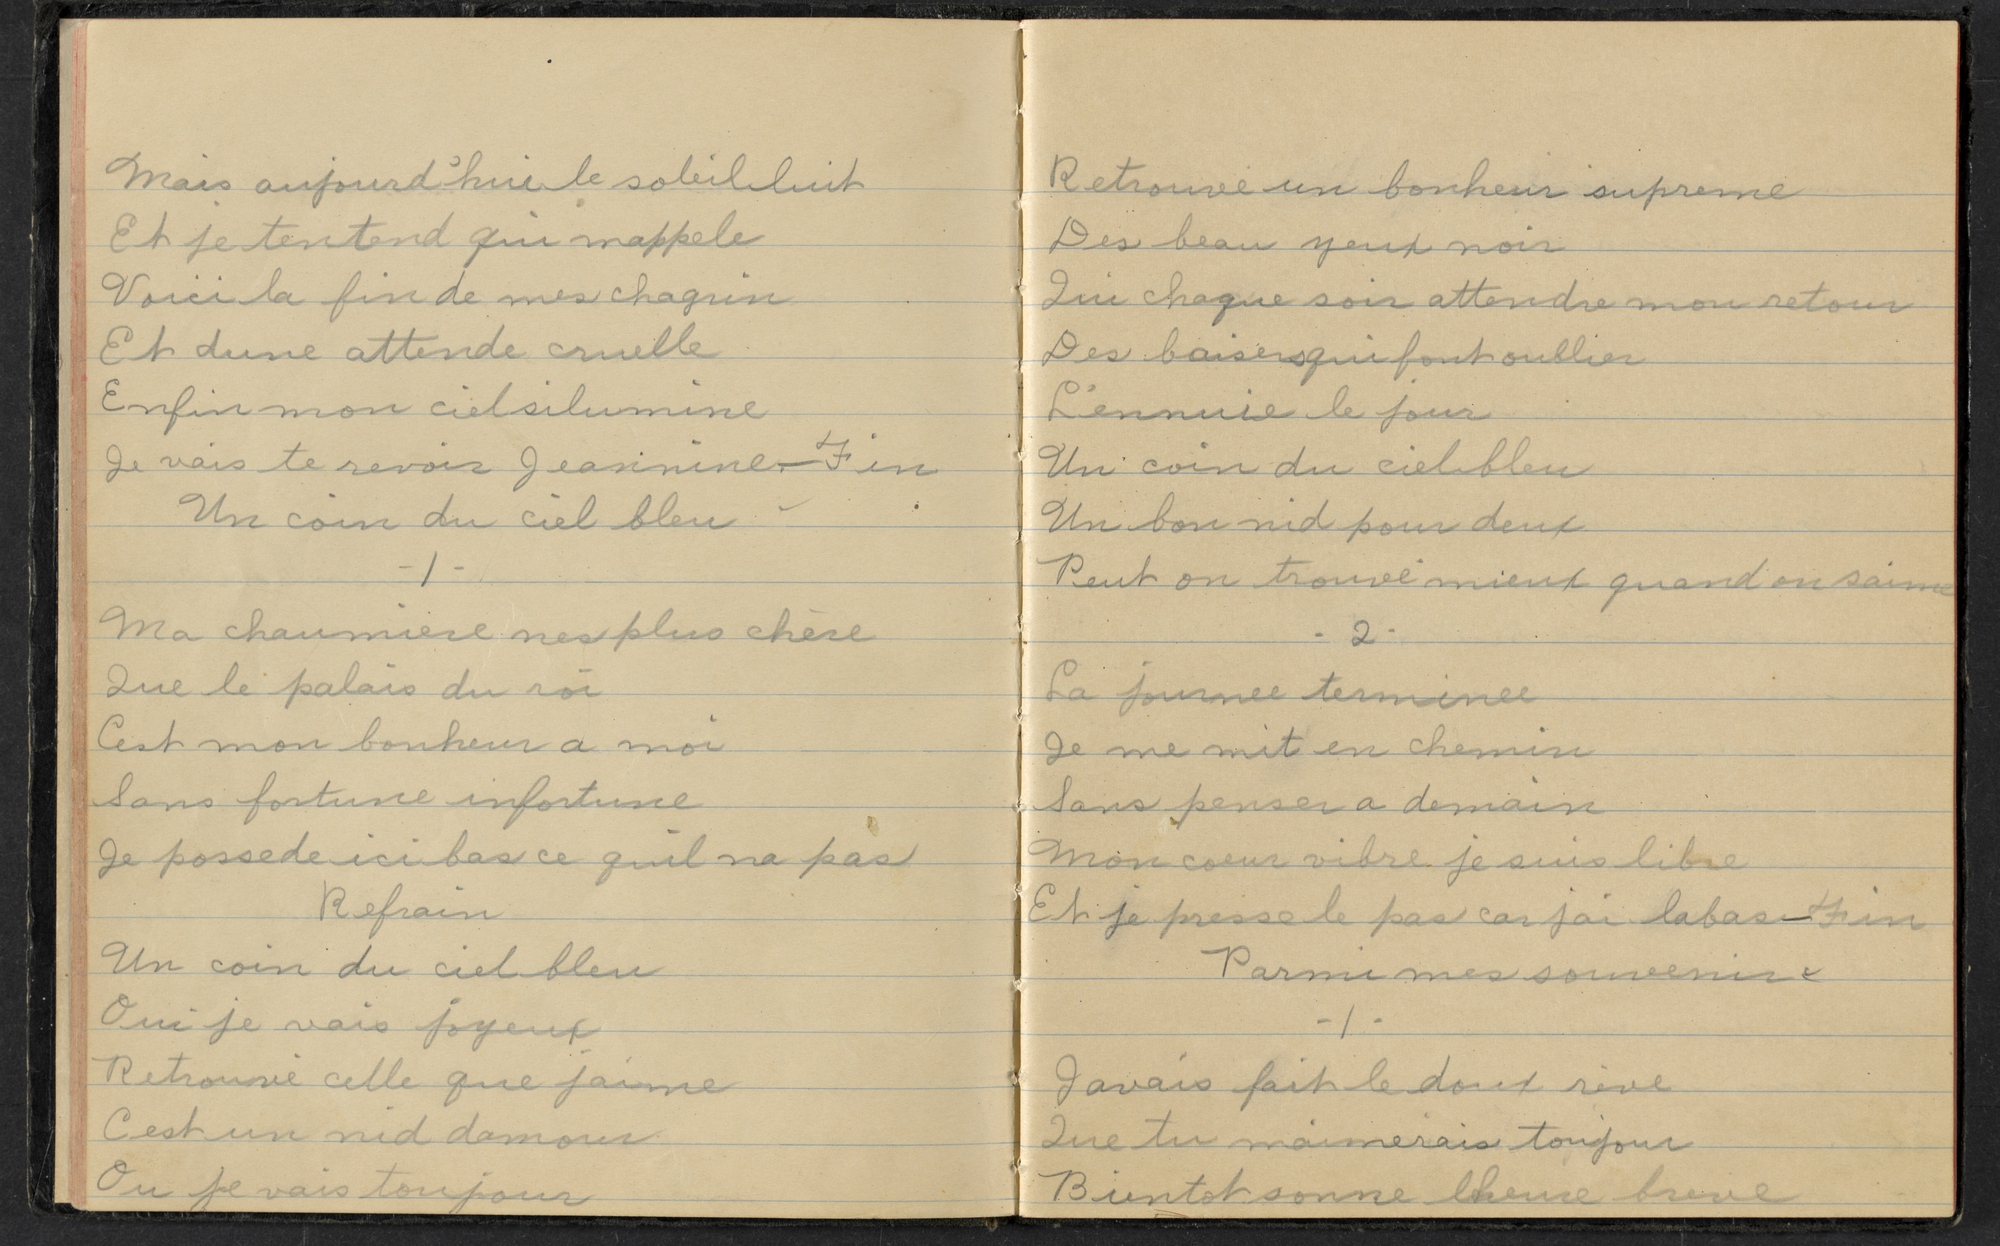 Mais aujourd'hui le soleil luit
Et je tentend qui mappele
Voici la fin de mes chagrin
Et dune attende cruelle
Enfin mon ciel silumine
Je vais te revoir Jeannine — Fin
Un coin du ciel bleu
- 1 -
Ma chaumiere nes plus chère
Que le palais du roi
Cest mon bonheur a moi
Sans fortune infortune
Je possede ici bas ce quil na pas
Refrain
Un coin du ciel bleu
Oui je vais joyeux
Retrouvé celle que j'aime
Cest un nid damour
Ou je vais toujour
Retrouvé un bonheur supreme
Des beau yeux noir
Qui chaque soir attendre mon retour
Des baisers qui font oublier
L'ennuie le jour
Un coin du ciel bleu
Un bon nid pour deux
Peut on trouvé mieux quand on saime
- 2 -
La journee terminee
Je me mit en chemin
Sans penser a demain
Mon coeur vibre je suis libre
Et je presse le pas car jai labas — Fin
Parmi mes souvenirs
- 1 -
Javais fait le doux rève
Que tu maimerais toujour
Bientot sonne lheure breve